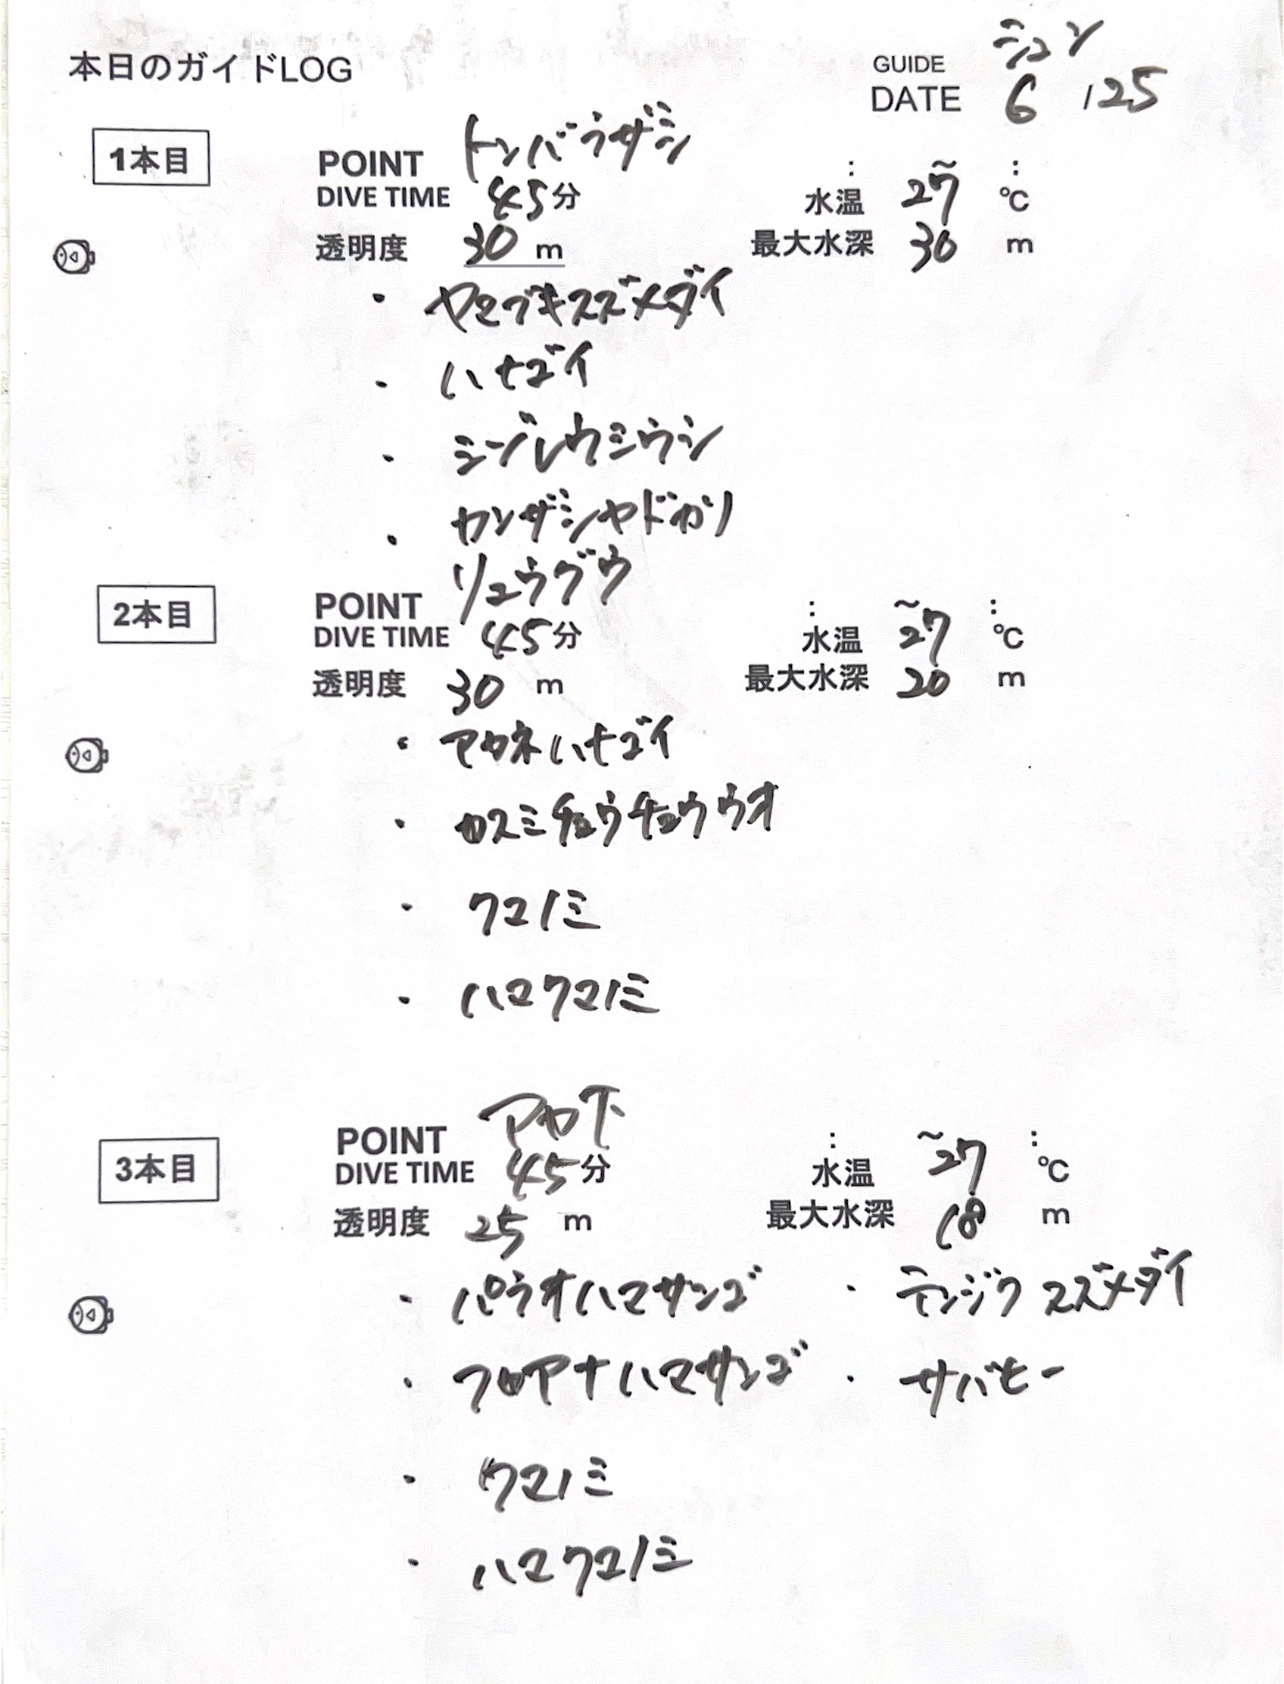 本日のガイドLOG
GUIDE ジュン
DATE 6 /25
1本目
POINT トンバラザシ
: ~ :
DIVE TIME 45分 水温 27 ℃
透明度 30 m 最大水深 30 m
・ ヤマブキスズメダイ
・ ハナゴイ
・ ミゾレウミウシ
・ カンザシヤドカリ
2本目
POINT リュウグウ
: ~ :
DIVE TIME 45分 水温 27 ℃
透明度 30 m 最大水深 20 m
・ アカネハナゴイ
・ カスミチョウチョウウオ
・ クマノミ
・ ハマクマノミ
3本目
POINT アカ下
: ~ :
DIVE TIME 45分 水温 27 ℃
透明度 25 m 最大水深 18 m
・ パラオハマサンゴ ・ テンジクスズメダイ
・ フカアナハマサンゴ ・ サバヒー
・ クマノミ
・ ハマクマノミ